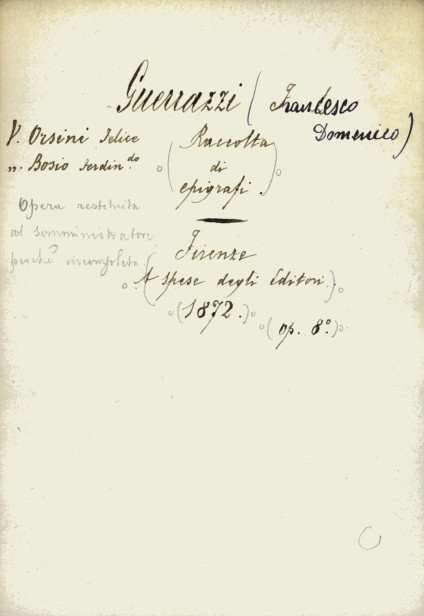 Guerrazzi (Francesco
Domenico)
V. Orsini Felice
". Bosio Ferdin.do
Opera restituita
al somministratore
perché incompleta
(Raccolta
di
epigrafi)
(Firenze
A spese degli Editori)
(1872.)
(op. 8º.)
C